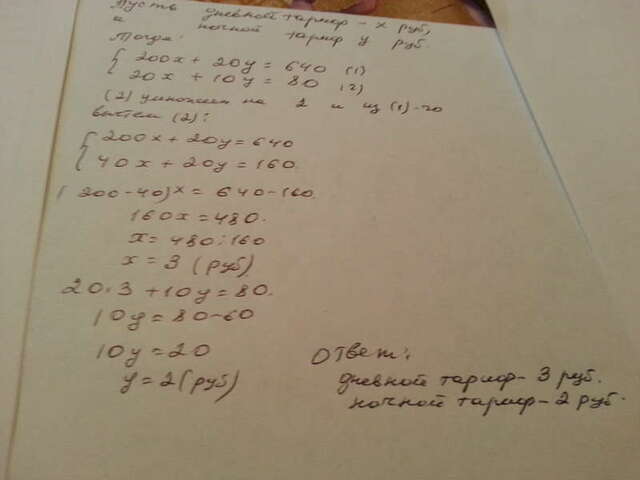 Пусть дневной тариф - x руб,
и ночной тариф y руб.
Тогда:
{ 200x + 20y = 640 (1)
20x + 10y = 80 (2)
(2) умножим на 2 и из (1)-го
вычтем (2):
{ 200x + 20y = 640
40x + 20y = 160.
(200-40)x = 640-160.
160x = 480.
x = 480:160
x = 3 (руб)
20·3 + 10y = 80.
10y = 80-60
10y = 20
y = 2 (руб)
Ответ:
дневной тариф - 3 руб.
ночной тариф - 2 руб.